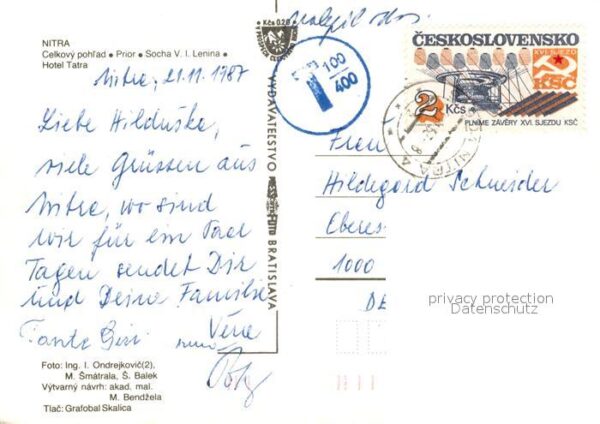 NITRA
Celkový pohľad • Prior • Socha V. I. Lenina •
Hotel Tatra
Nitra, 21.11.1987
Liebe Hilduška,
viele Grüssen aus
Nitra, wo sind
wir für ein Paar
Tagen sendet Dir
und Deine Familie
Tante
Kčs 0,20
VYDAVATEĽSTVO
BRATISLAVA
100
400
ČESKOSLOVENSKO
XVI. SJEZD
KSČ
2 Kčs
PLNÍME ZÁVĚRY XVI. SJEZDU KSČ
NITRA 4
Hildegard Schneider
1000
privacy protection
Datenschutz
Foto: Ing. I. Ondrejkovič(2),
M. Šmátrala, Š. Balek
Výtvarný návrh: akad. mal.
M. Bendžela
Tlač: Grafobal Skalica